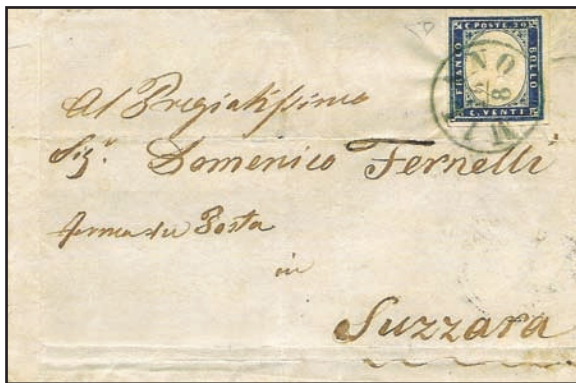 C. POSTE 20
FRANCO
BOLLO
C. VENTI
Al Pregiatissimo
Sig.r Domenico Fernelli
ferma in Posta
in
Suzzara